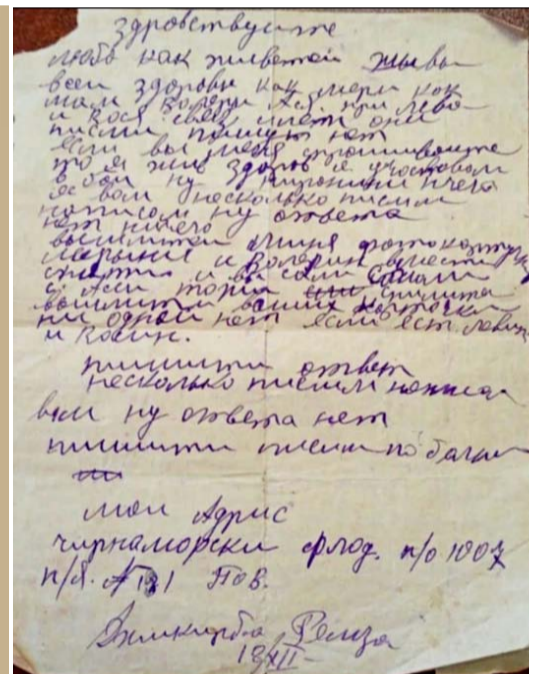 здровствуите
люба как живетои жывы
всеи здоровы как мери как
мам Волери Ася. при лева
и Кося свех они
писми пишут нет
если вы меня спрошиваите
то я жив здоров я участвовал
в бою ну ничего
я вам несколько писим
написом ну ответа
нет ничего
вышлитои миня фотокарточку
и Волерин вмести
снити и вы сами
с Аси тожи
вышлити всиих карточки
ни однои нет если ест левин
и Косин.
пишити ответ
несколько писим написал
вам ну ответа нет
пишити писми по болши
мои Адрис
чирнаморски флод. п/о 1007
п/я. № 1 Пов.
Реиза
18/XII